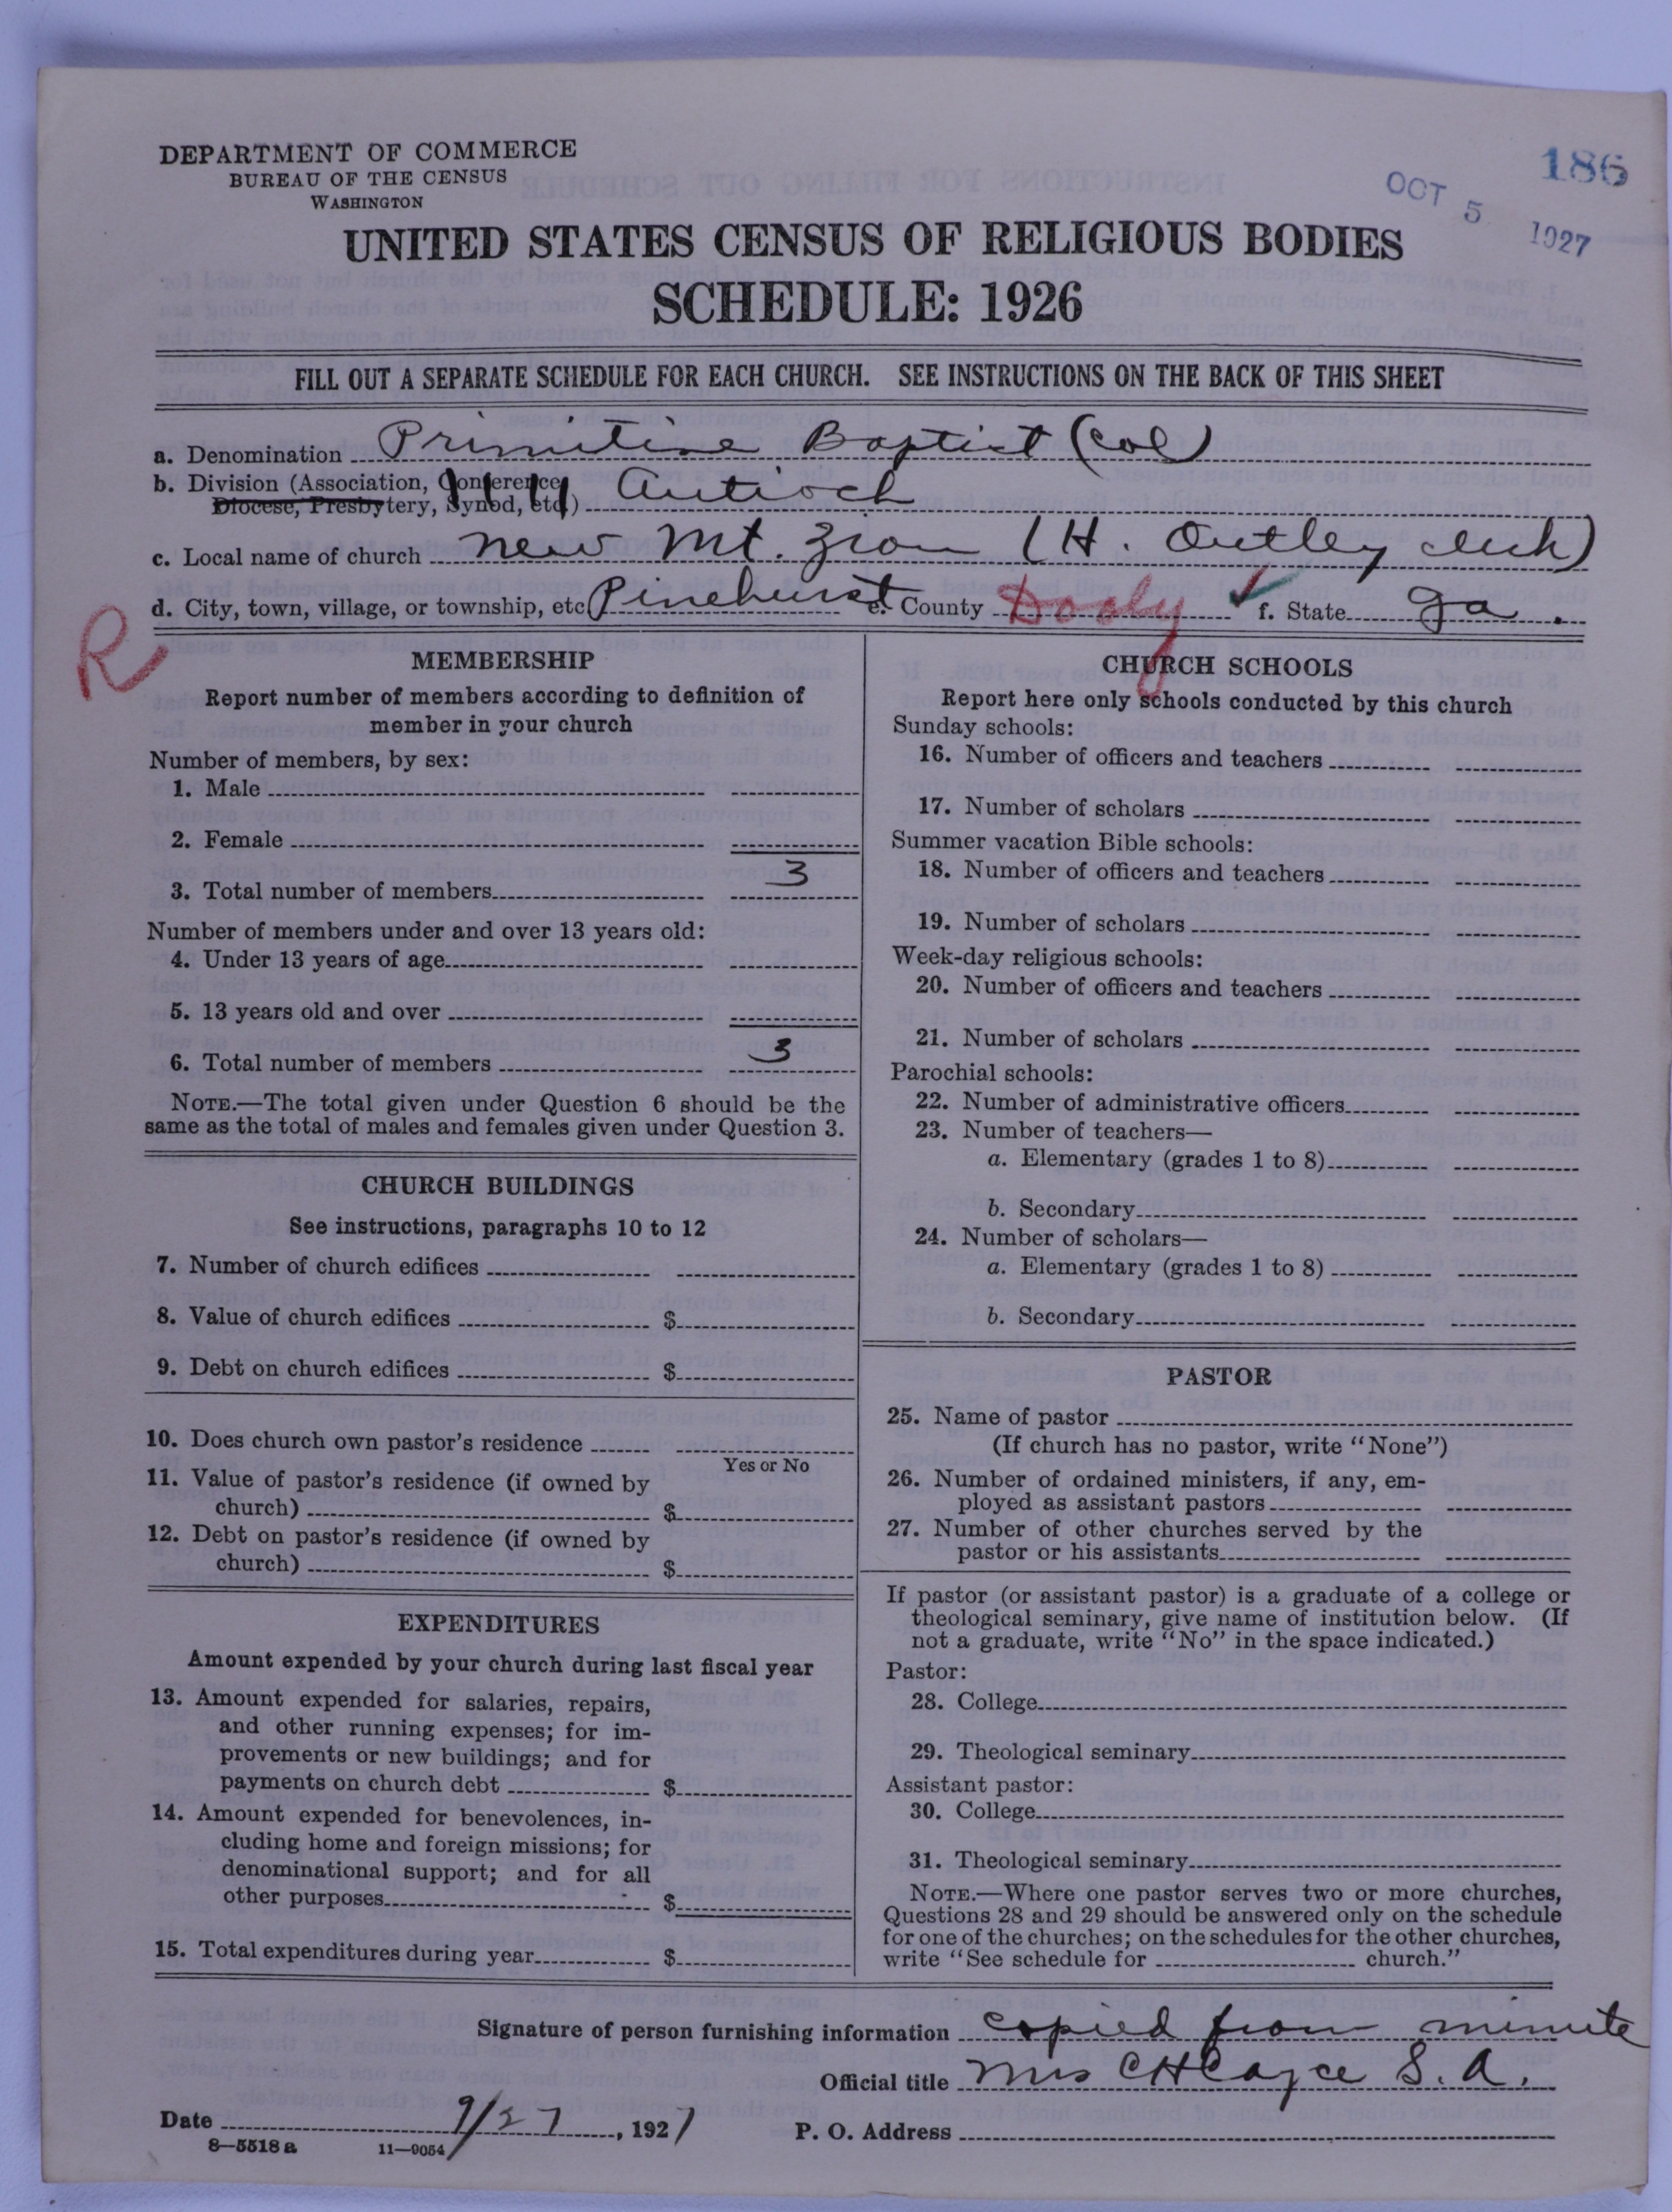 DEPARTMENT OF COMMERCE
BUREAU OF THE CENSUS
WASHINGTON
186
OCT 5 1927
UNITED STATES CENSUS OF RELIGIOUS BODIES
SCHEDULE: 1926
FILL OUT A SEPARATE SCHEDULE FOR EACH CHURCH. SEE INSTRUCTIONS ON THE BACK OF THIS SHEET
a. Denomination Primitive Baptist (Col)
b. Division (Association, Conference,
Diocese, Presbytery, Synod, etc.) Antioch
c. Local name of church New Mt. Zion (H. Outley clerk)
d. City, town, village, or township, etc. Pinehurst e. County Dooly ✓ f. State Ga.
R
MEMBERSHIP
Report number of members according to definition of
member in your church
Number of members, by sex:
1. Male
2. Female
3. Total number of members 3
Number of members under and over 13 years old:
4. Under 13 years of age
5. 13 years old and over
6. Total number of members 3
NOTE.—The total given under Question 6 should be the
same as the total of males and females given under Question 3.
CHURCH BUILDINGS
See instructions, paragraphs 10 to 12
7. Number of church edifices
8. Value of church edifices $
9. Debt on church edifices $
10. Does church own pastor's residence
Yes or No
11. Value of pastor's residence (if owned by
church) $
12. Debt on pastor's residence (if owned by
church) $
EXPENDITURES
Amount expended by your church during last fiscal year
13. Amount expended for salaries, repairs,
and other running expenses; for im-
provements or new buildings; and for
payments on church debt $
14. Amount expended for benevolences, in-
cluding home and foreign missions; for
denominational support; and for all
other purposes $
15. Total expenditures during year $
CHURCH SCHOOLS
Report here only schools conducted by this church
Sunday schools:
16. Number of officers and teachers
17. Number of scholars
Summer vacation Bible schools:
18. Number of officers and teachers
19. Number of scholars
Week-day religious schools:
20. Number of officers and teachers
21. Number of scholars
Parochial schools:
22. Number of administrative officers
23. Number of teachers—
a. Elementary (grades 1 to 8)
b. Secondary
24. Number of scholars—
a. Elementary (grades 1 to 8)
b. Secondary
PASTOR
25. Name of pastor
(If church has no pastor, write "None")
26. Number of ordained ministers, if any, em-
ployed as assistant pastors
27. Number of other churches served by the
pastor or his assistants
If pastor (or assistant pastor) is a graduate of a college or
theological seminary, give name of institution below. (If
not a graduate, write "No" in the space indicated.)
Pastor:
28. College
29. Theological seminary
Assistant pastor:
30. College
31. Theological seminary
NOTE.—Where one pastor serves two or more churches,
Questions 28 and 29 should be answered only on the schedule
for one of the churches; on the schedules for the other churches,
write "See schedule for church."
Signature of person furnishing information copied from minute
Official title Mrs C H Cayce S. A.
Date 9/27, 1927 P. O. Address
8—5518 a 11—9054